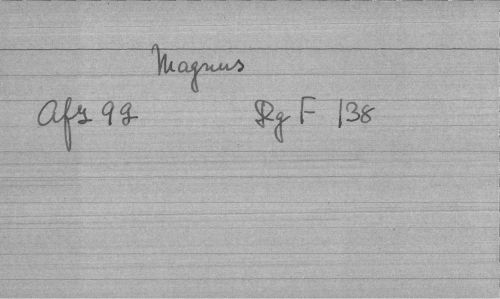 Magnus
Afz 99 Rg F 138